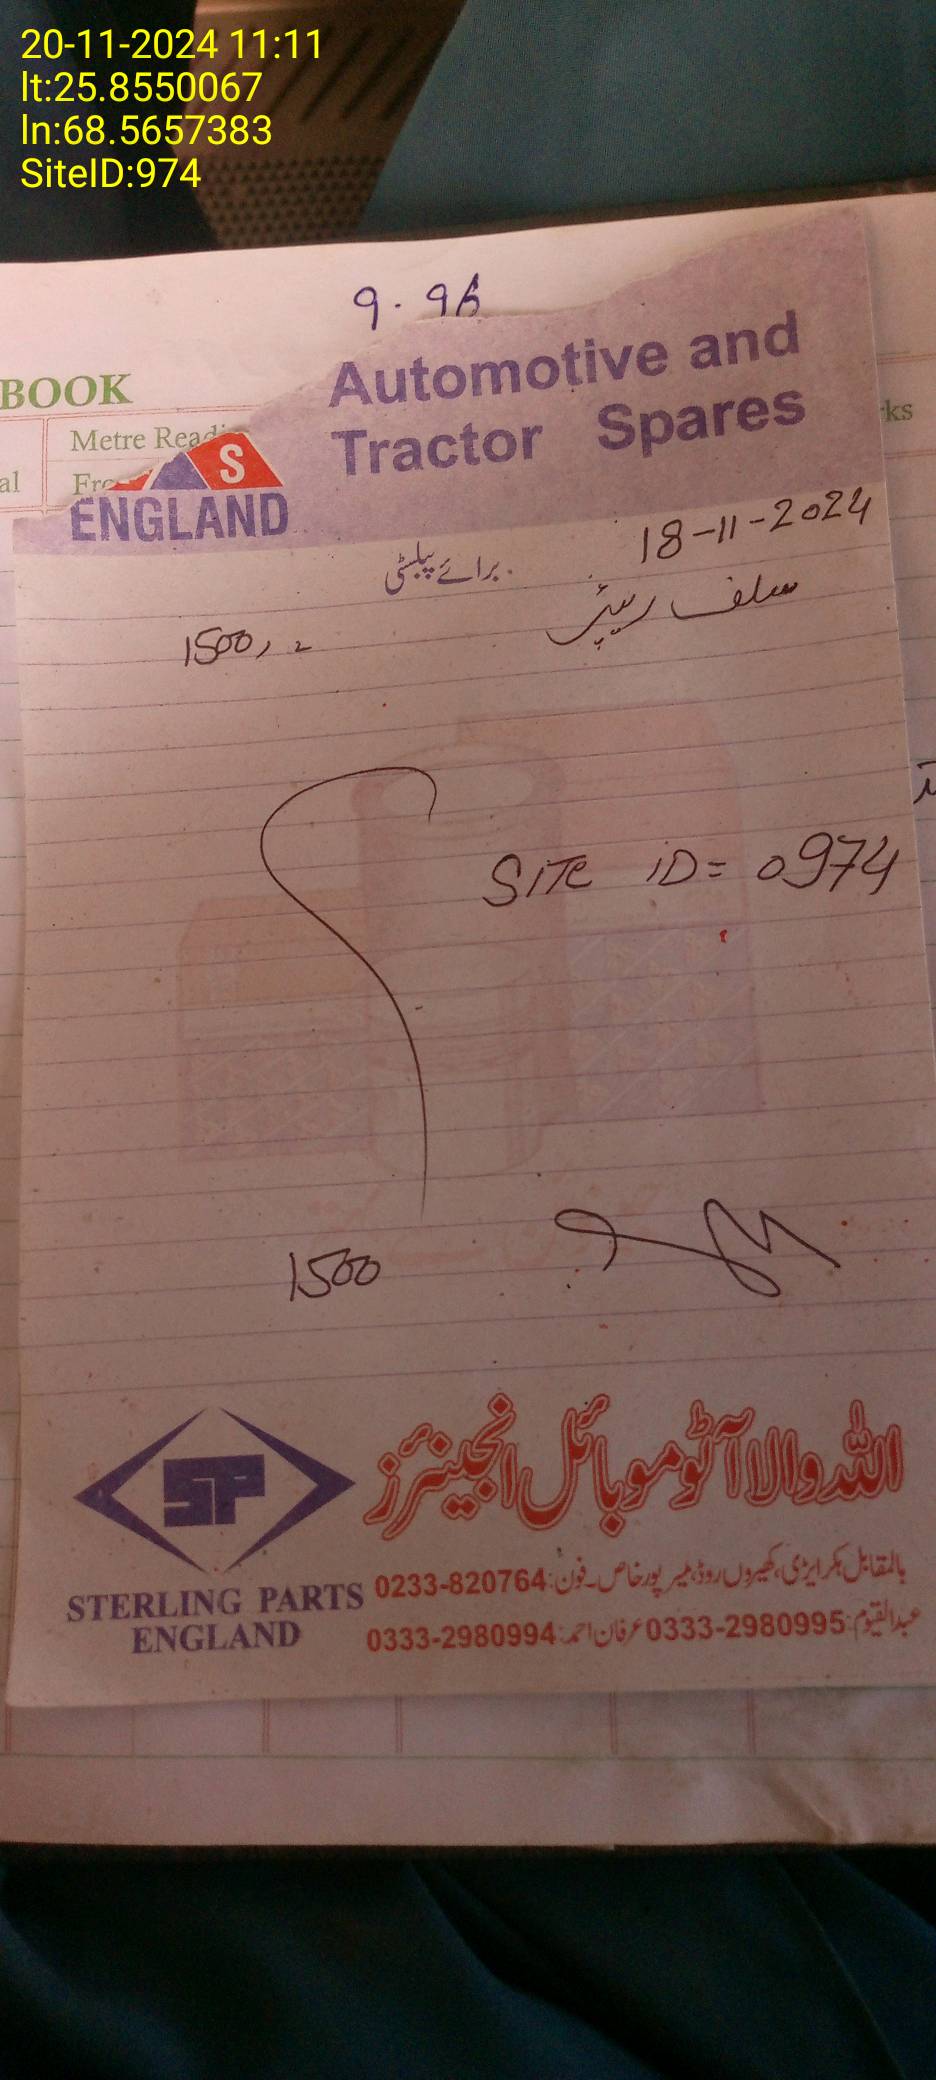 20-11-2024 11:11
lt:25.8550067
ln:68.5657383
SiteID:974
9.96
BOOK
Metre Readi
ks
al
Fro
Automotive and
Tractor Spares
S
ENGLAND
18-11-2024
برائے پبلسٹی
سلف رپیئر
1500/=
SITE ID = 0974
1500
SP
STERLING PARTS
ENGLAND
اللہ والا آٹو موبائل انجینئرز
بالمقابل بکرا پڑی، کھپرو روڈ، میرپور خاص۔ فون: 0233-820764
عبدالقیوم: 0333-2980995 عرفان احمد: 0333-2980994